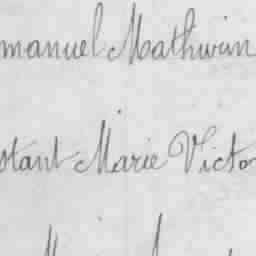 manuel Mathurin
stant Marie Victor